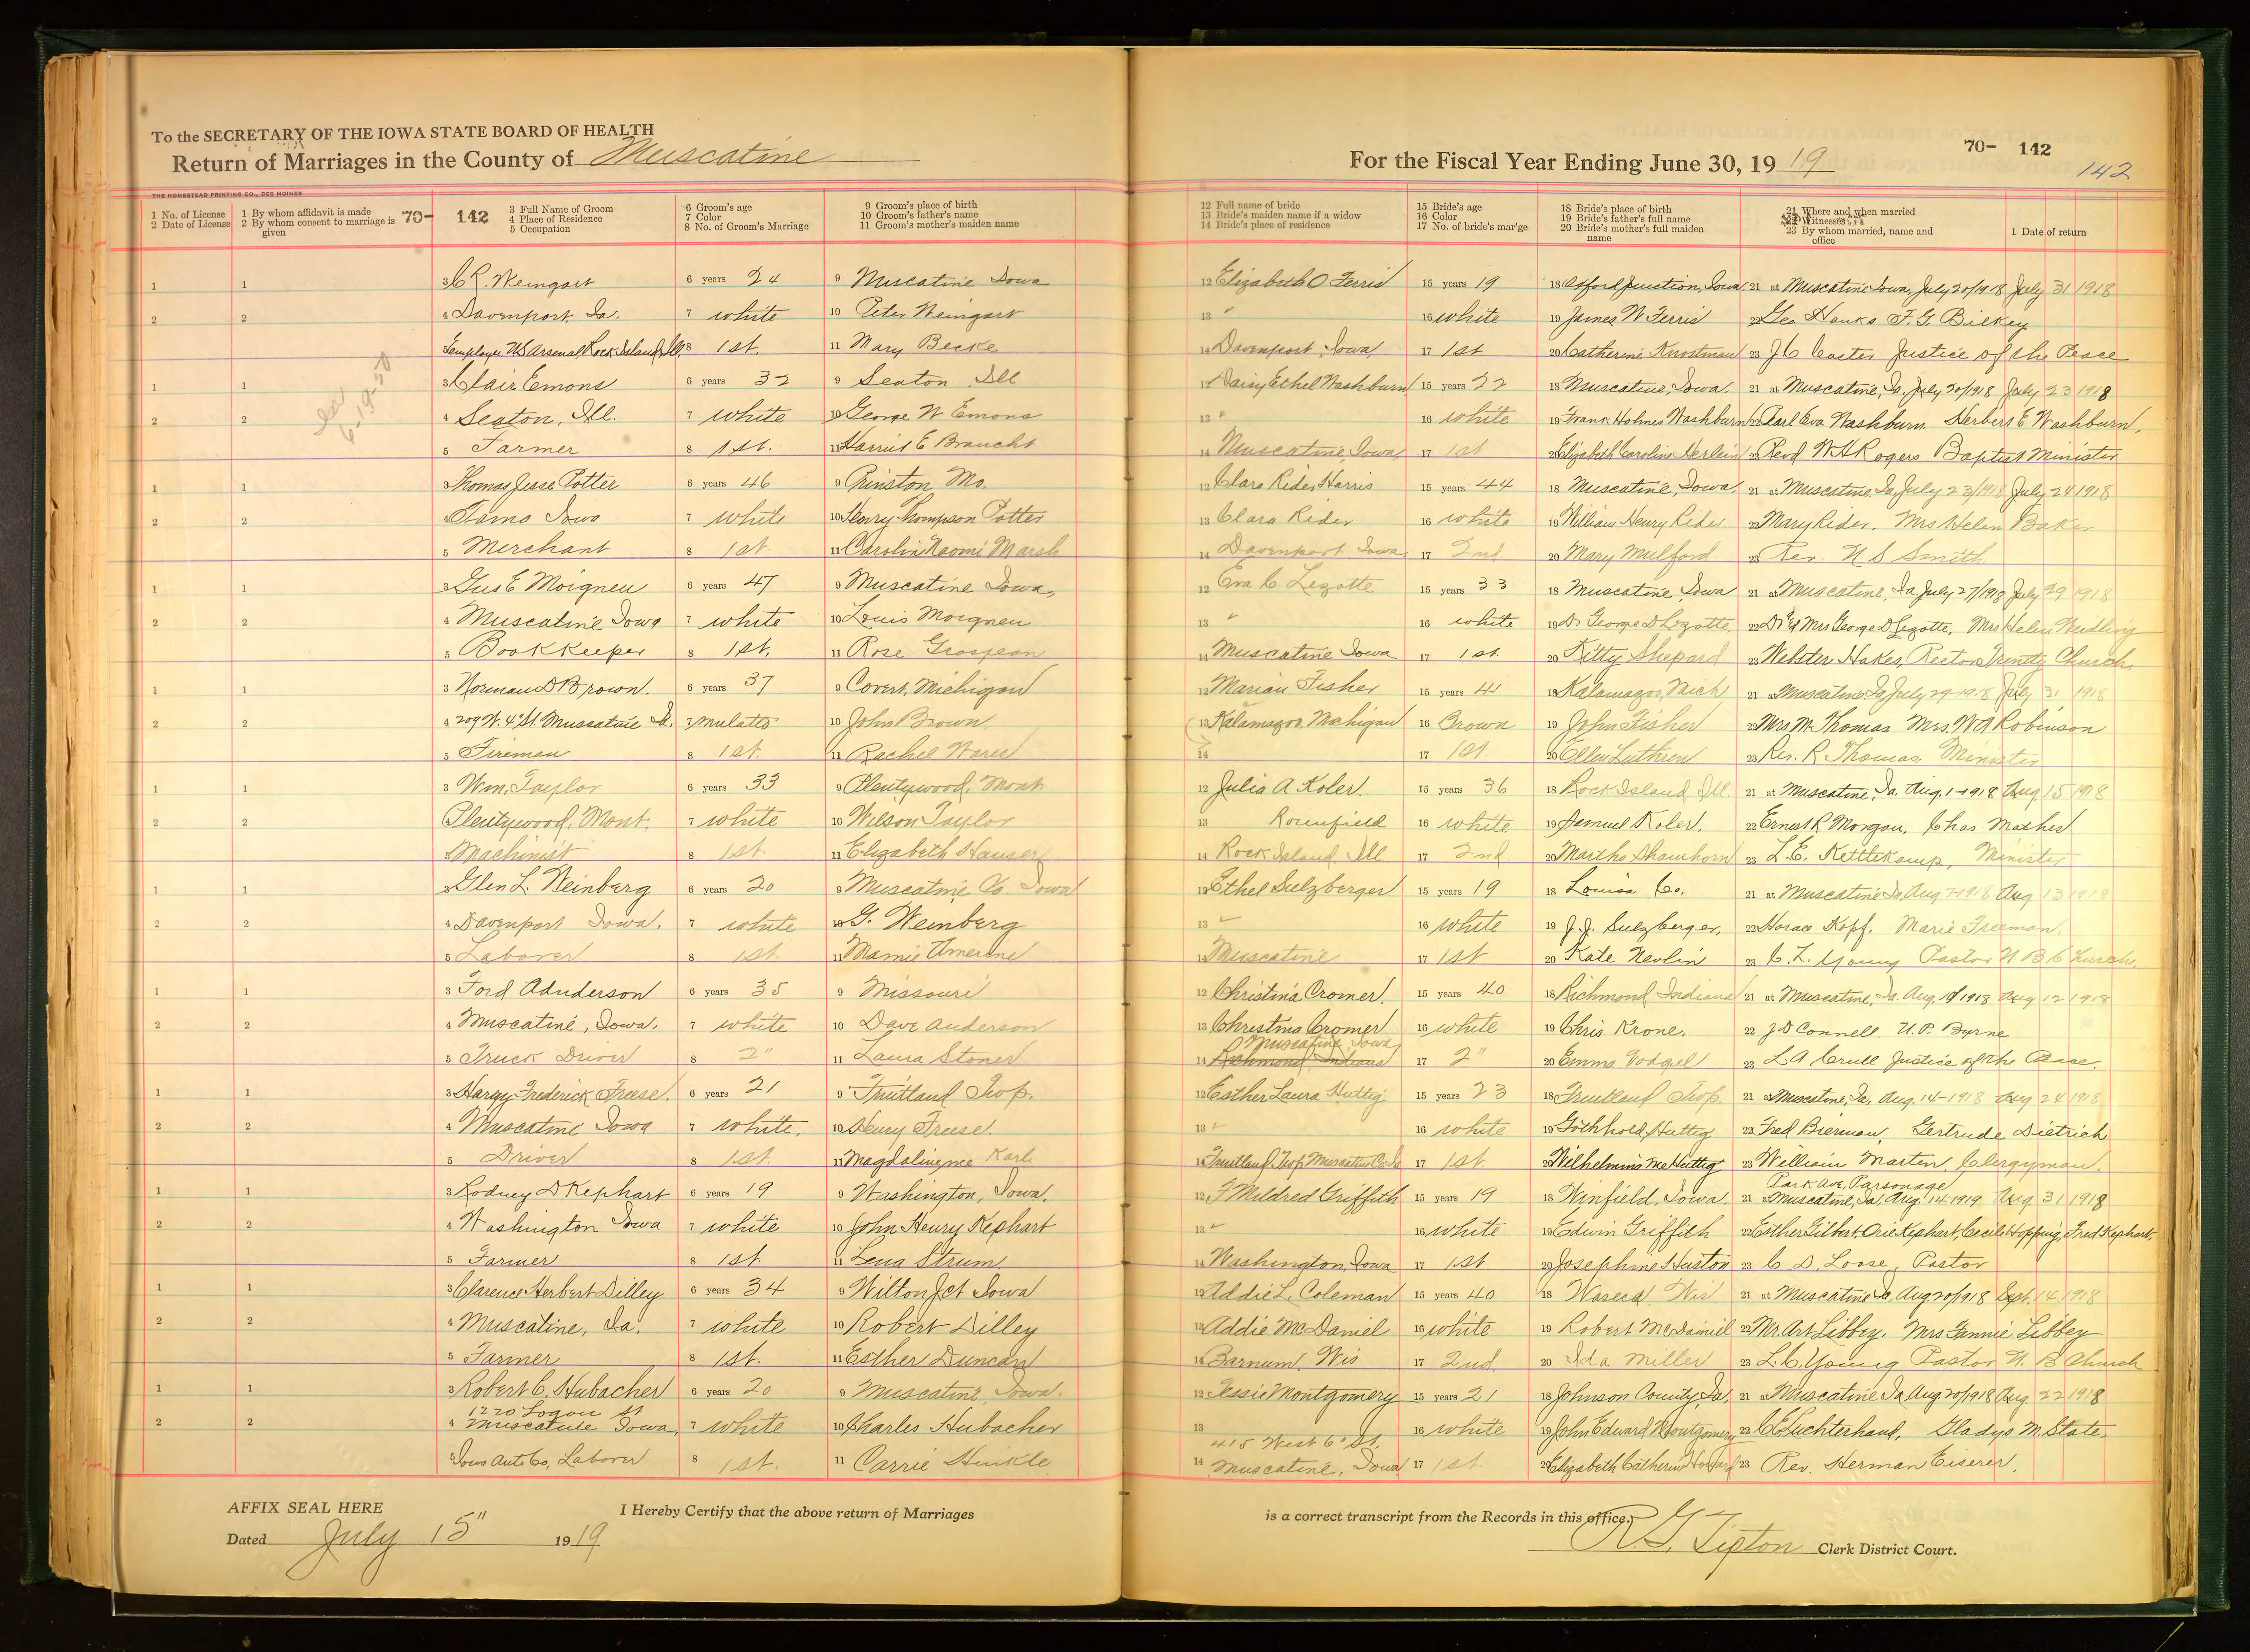 To the SECRETARY OF THE IOWA STATE BOARD OF HEALTH
Return of Marriages in the County of Muscatine
For the Fiscal Year Ending June 30, 19 19
70- 142
142
THE HOMESTEAD PRINTING CO., DES MOINES
1 No. of License 1 By whom affidavit is made 70- 142 3 Full Name of Groom 6 Groom's age 9 Groom's place of birth 12 Full name of bride 15 Bride's age 18 Bride's place of birth 21 Where and when married
2 Date of License 2 By whom consent to marriage is given 4 Place of Residence 7 Color 10 Groom's father's name 13 Bride's maiden name if a widow 16 Color 19 Bride's father's full name 22 Witnesses
5 Occupation 8 No. of Groom's Marriage 11 Groom's mother's maiden name 14 Bride's place of residence 17 No. of bride's mar'ge 20 Bride's mother's full maiden name 23 By whom married, name and office 1 Date of return
1 1 3 C R. Weingart 6 years 24 9 Muscatine Iowa 12 Elizabeth O Ferris 15 years 19 18 Oxford Junction, Iowa 21 at Muscatine Iowa, July 20/1918 July 31 1918
2 2 4 Davenport, Ia. 7 white 10 Peter Weingart 13 " 16 white 19 James W Ferris 22 Geo Hanks F. G. Bilkey
5 employee US Arsenal, Rock Island, Ill. 8 1st. 11 Mary Becke 14 Davenport, Iowa 17 1st 20 Catherine Knostman 23 J C Coster Justice of the Peace
6-19-50
1 1 3 Clair Emons 6 years 32 9 Seaton Ill 12 Daisy Ethel Washburn 15 years 22 18 Muscatine, Iowa. 21 at Muscatine, Ia, July 20/1918 July 23 1918
2 2 4 Seaton, Ill. 7 white 10 George W Emons 13 " 16 white 19 Frank Holmes Washburn 22 Pearl Eva Washburn Herbert E Washburn.
5 Farmer 8 1st. 11 Harriet E Braucht 14 Muscatine, Iowa, 17 1st 20 Elizabeth Caroline Herlein 23 Revd W H Rogers Baptist Minister
1 1 3 Thomas Jesse Potter 6 years 46 9 Prinston, Mo. 12 Clara Rider Harris 15 years 44 18 Muscatine, Iowa. 21 at Muscatine Ia, July 23/1918 July 24 1918
2 2 4 Iowa 7 white 10 Henry Thompson Potter 13 Clara Rider 16 white 19 William Henry Rider 22 Mary Rider. Mrs Helen Baker
5 Merchant 8 1st 11 Carolin Naomi Marsh 14 Davenport, Iowa 17 2nd 20 Mary Mulford 23 Rev. U S Smith
1 1 3 Gus E Moigneu 6 years 47 9 Muscatine Iowa, 12 Eva C. Lezotte 15 years 33 18 Muscatine, Iowa 21 at Muscatine, Ia July 27/1918 July 29 1918
2 2 4 Muscatine Iowa 7 white 10 Louis Moigneu 13 " 16 white 19 Dr George D Lezotte, 22 Dr & Mrs George D Lezotte, Mrs Helen
5 Bookkeeper 8 1st. 11 Rose Grosjean 14 Muscatine Iowa 17 1st. 20 Kitty Shepard 23 Webster Hakes, Rector Trinity Church.
1 1 3 Norman D Brown. 6 years 37 9 Covert, Michigan 12 Marian Fisher 15 years 41 18 Kalamazoo, Mich 21 at Muscatine Ia July 29-1918 July 31 1918
2 2 4 209 W. 4" St. Muscatine Ia. 7 mulatto 10 John Brown 13 Kalamazoo, Michigan 16 Brown 19 John Fisher 22 Mrs M. Thomas Mrs. W A Robinson
5 Fireman 8 1st. 11 Rachel 14 17 1st 20 Ellen 23 Rev. R. Thomas, Minister
1 1 3 Wm. Taylor 6 years 33 9 Plentywood, Mont. 12 Julia A Koler. 15 years 36 18 Rock Island Ill. 21 at Muscatine, Ia. Aug. 1-1918 Aug. 15 1918
2 2 Plentywood, Mont. 7 white 10 Wilson Taylor 13 16 white 19 Samuel Koler. 22 Ernest R Morgan, Chas Mather
5 Machinist 8 1st 11 Elizabeth Hauser 14 Rock Island, Ill 17 2nd 20 Martha Shawhorn 23 L. E. Kettlekamp, Minister
1 1 3 Glen L. Weinberg 6 years 20 9 Muscatine Co Iowa 12 Ethel Sulzberger 15 years 19 18 Louisa Co. 21 at Muscatine Ia Aug 7-1918 Aug 13 1918
2 2 4 Davenport Iowa. 7 white 10 G. Weinberg 13 " 16 white 19 J. J. Sulzberger, 22 Horace Kopf. Marie Freeman.
5 Laborer 8 1st. 11 Mamie Amerine 14 Muscatine 17 1st 20 Kate Nevlin 23 C. L. Young Pastor U B Church.
1 1 3 Ford Adnderson 6 years 35 9 Missouri 12 Christina Cromer. 15 years 40 18 Richmond, Indiana 21 at Muscatine, Ia. Aug. 10 1918 Aug 12 1918
2 2 4 Muscatine, Iowa. 7 white 10 Dave Anderson 13 Christina Cromer 16 white 19 Chris Krone, 22 J D Connell. U. P. Byrne
Muscatine, Iowa
5 Truck Driver 8 2" 11 Laura Stoner 14 Richmond, Indiana 17 2" 20 Emma Vodgel 23 L A Crull Justice of the Peace.
1 1 3 Harry Frederick Freese. 6 years 21 9 Fruitland Twp. 12 Esther Laura Huttig 15 years 23 18 Fruitland Twp. 21 at Muscatine, Ia, Aug. 14-1918 Aug 24 1918
2 2 4 Muscatine Iowa 7 white. 10 Henry Freese. 13 " 16 white 19 Gothhold Huttig 22 Fred Bierman, Gertrude Dietrich
5 Driver 8 1st. 11 Magdaline nee Karl 14 Fruitland Twp Muscatine Co Ia 17 1st. 20 Wilhelmina Huttig 23 William Marten. Clergyman.
Park Ave. Parsonage
1 1 3 Rodney D Kephart 6 years 19 9 Washington, Iowa. 12 F Mildred Griffith 15 years 19 18 Winfield, Iowa 21 at Muscatine, Ia, Aug. 14-1919 Aug 31 1918
2 2 4 Washington Iowa 7 white 10 John Henry Kephart 13 " 16 white 19 Edwin Griffith 22 Esther Gilbert, Orie Kephart, Cecile Hopping, Fred Kephart.
5 Farmer 8 1st. 11 Lena Strum 14 Washington, Iowa 17 1st 20 Josephine Huston 23 C. D. Loose, Pastor
1 1 3 Clarence Herbert Dilley 6 years 34 9 Wilton Jct Iowa 12 Addie L. Coleman 15 years 40 18 Waseca Wis 21 at Muscatine Ia, Aug 20/1918 Sept. 14 1918
2 2 4 Muscatine, Ia. 7 white 10 Robert Dilley 13 Addie McDaniel 16 white 19 Robert McDainiel 22 Mr. Art Libbey. Mrs Fannie Libbey
5 Farmer 8 1st. 11 Esther Duncan 14 Barnum, Wis 17 2nd 20 Ida Miller 23 L. C. Young Pastor U. B Church
1 1 3 Robert C. Hubacher 6 years 20 9 Muscatine, Iowa. 12 Jessie Montgomery 15 years 21 18 Johnson County, Ia. 21 at Muscatine Ia Aug 20/1918 Aug 22 1918
1220 Logan St
2 2 4 Muscatine Iowa, 7 white 10 Charles Hubacher 13 16 white 19 John Edward Montgomery 22 C E Luchterhand, Gladys M. State.
415 West 6" St.
5 Iowa Auto Co, Laborer 8 1st. 11 Carrie Hinkle 14 Muscatine, Iowa 17 1st 20 Elizabeth Catherine 23 Rev. Herman Eiserer.
AFFIX SEAL HERE
I Hereby Certify that the above return of Marriages is a correct transcript from the Records in this office.
Dated July 15" 1919
R. G. Tipton Clerk District Court.